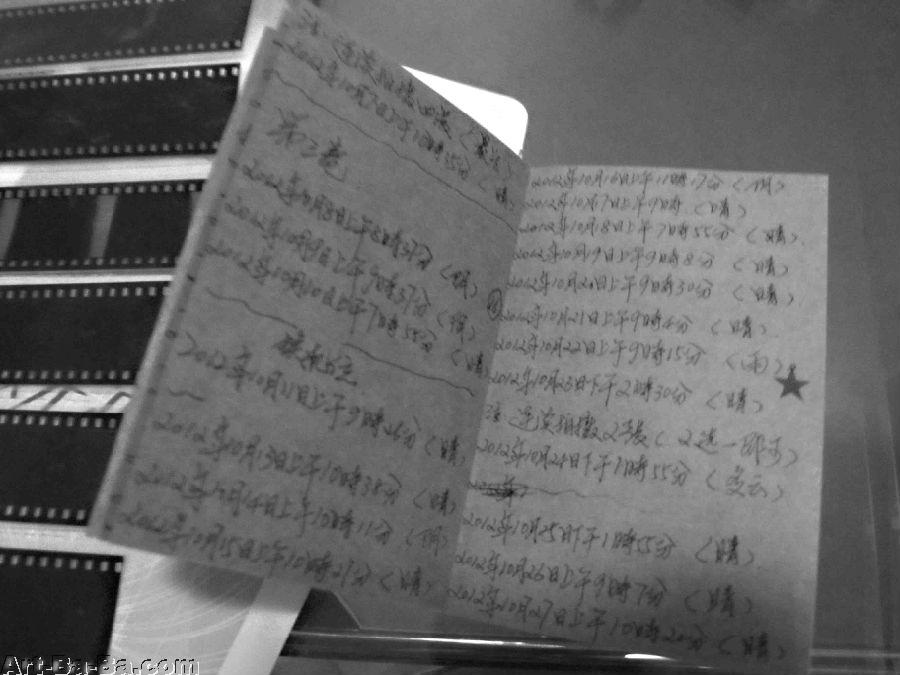 注:连续拍摄四张
2012年10月7日下午1時35分(晴)
第三卷
2012年10月8日上午8時37分
2012年10月9日上午9時37分
2012年10月10日上午7時55分(晴)
2012年10月11日上午9時26分(晴)
2012年10月13日上午10時38分(晴)
2012年10月14日上午10時11分
2012年10月15日上午10時21分(晴)
2012年10月16日上午11時17分
2012年10月17日上午9時(晴)
2012年10月18日上午7時55分(晴)
2012年10月19日上午9時8分(晴)
2012年10月20日上午9時30分(晴)
2012年10月21日上午9時4分(晴)
2012年10月22日上午9時15分(雨)
2012年10月23日下午2時30分(晴)
注:连续拍摄2张(2选一即可)
2012年10月24日下午1時55分(多云)
2012年10月25日下午1時55分(晴)
2012年10月26日上午9時7分(晴)
2012年10月27日上午10時20分(晴)
Art-Ba-Ba.com